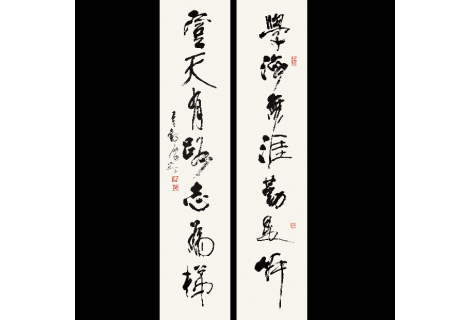 學海無涯勤是岸
登天有路志為梯